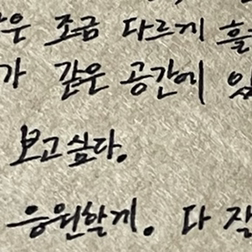 은 조금 다르게 흘
가 같은 공간에 있
보고싶다.
응원할게. 다 잘